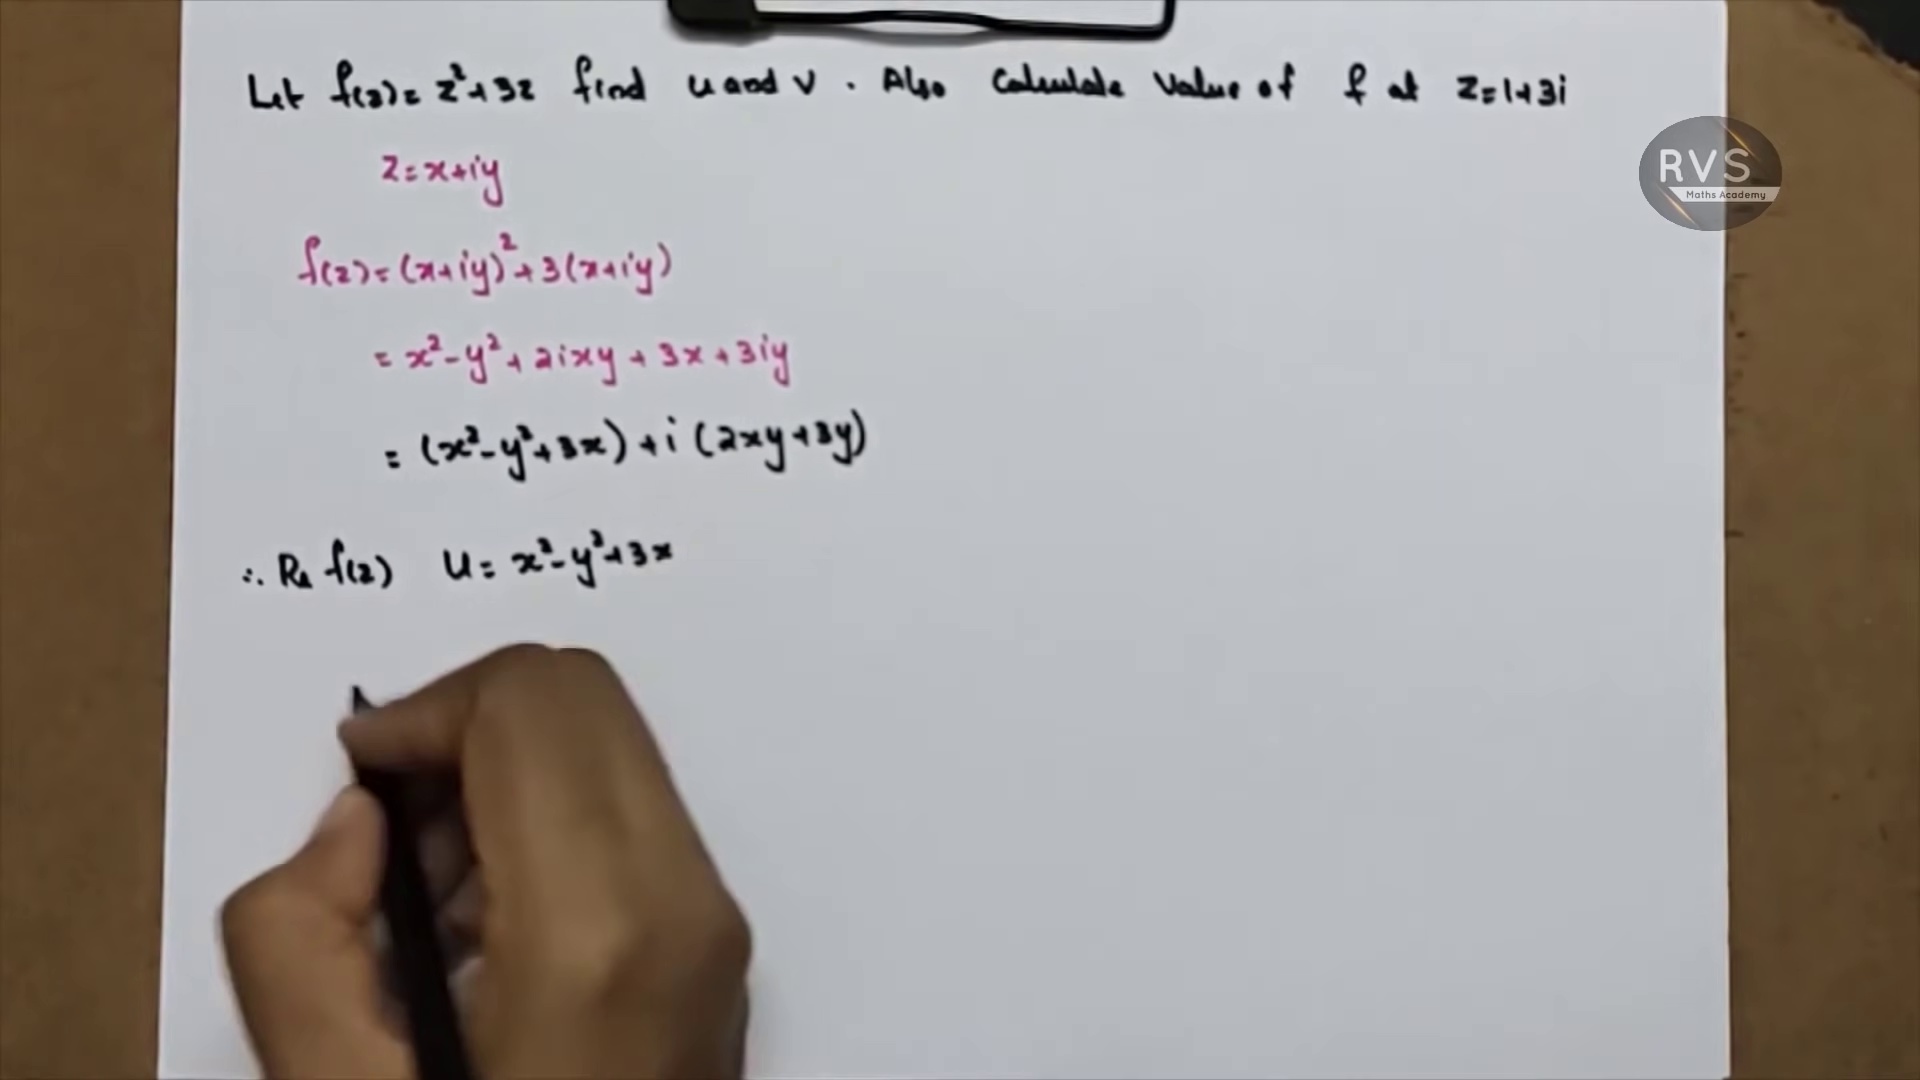 Let f(z) = z²+3z find u and v . Also Calculate Value of f at z=1+3i
RVS
Maths Academy
z=x+iy
f(z)=(x+iy)²+3(x+iy)
= x²-y²+2ixy+3x+3iy
= (x²-y²+3x)+i(2xy+3y)
∴ Re f(z) u = x²-y²+3x